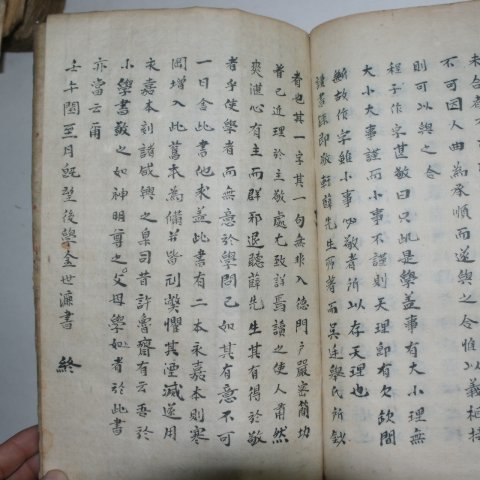 未合者
不可因人曲為承順而遂與之合惟以義相接
則可以與之合
程子作字甚敬曰只此是學蓋事有大小理無
大小大事謹而小事不謹則天理即有欠缺間
斷故作字雖小事必敬者所以存天理也
讀書錄即敬軒薛先生所著而吳廷舉氏所鈔
者也其一字其一句無非入德門戶嚴密簡切
普已近理於主敬處尤致詳焉讀之使人肅然
爽湛心有主而群邪退聽薛先生其有得於敬
者乎使學者而無意於學問已如其有意不可
一日舍此書他求蓋此書有二本永嘉本則寒
岡增入此舊本為備若當刊獎懼其湮滅遂用
永嘉本刻諸咸興之臬司昔許魯齋有云吾於
小學書敬之如神明尊之如父母學如者於此書
亦當云爾
壬午閏至月旣望後學金世濂書 終